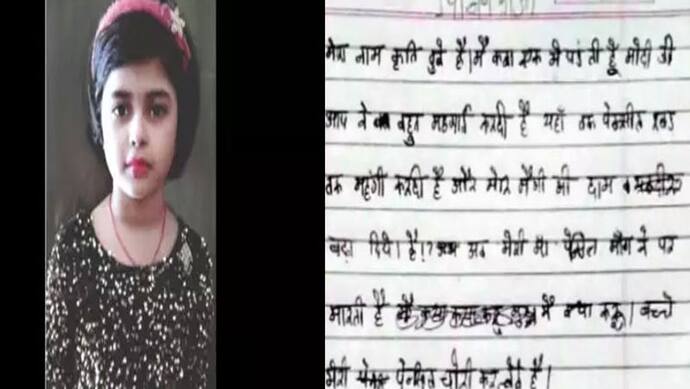 मेरा नाम कृति दुबे है। मै कक्षा एक मे पढ़ती हूँ मोदी जी
आप ने बहुत महगाई करदी है यहाँ तक पेन्सील रबड़
तक महंगी करदी है और मेरे मैगी की दाम भी
बढ़ा दिये है। अब मेरी माँ पेन्सिल माँगने पर
मारती है मै क्या करू। बच्चे
मेरी पेन्सिल चोरी कर लेते है।